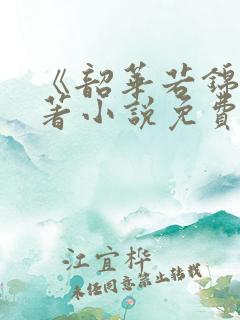 《韶华若锦
著小说免费
江宜桦
未经同意禁止转载